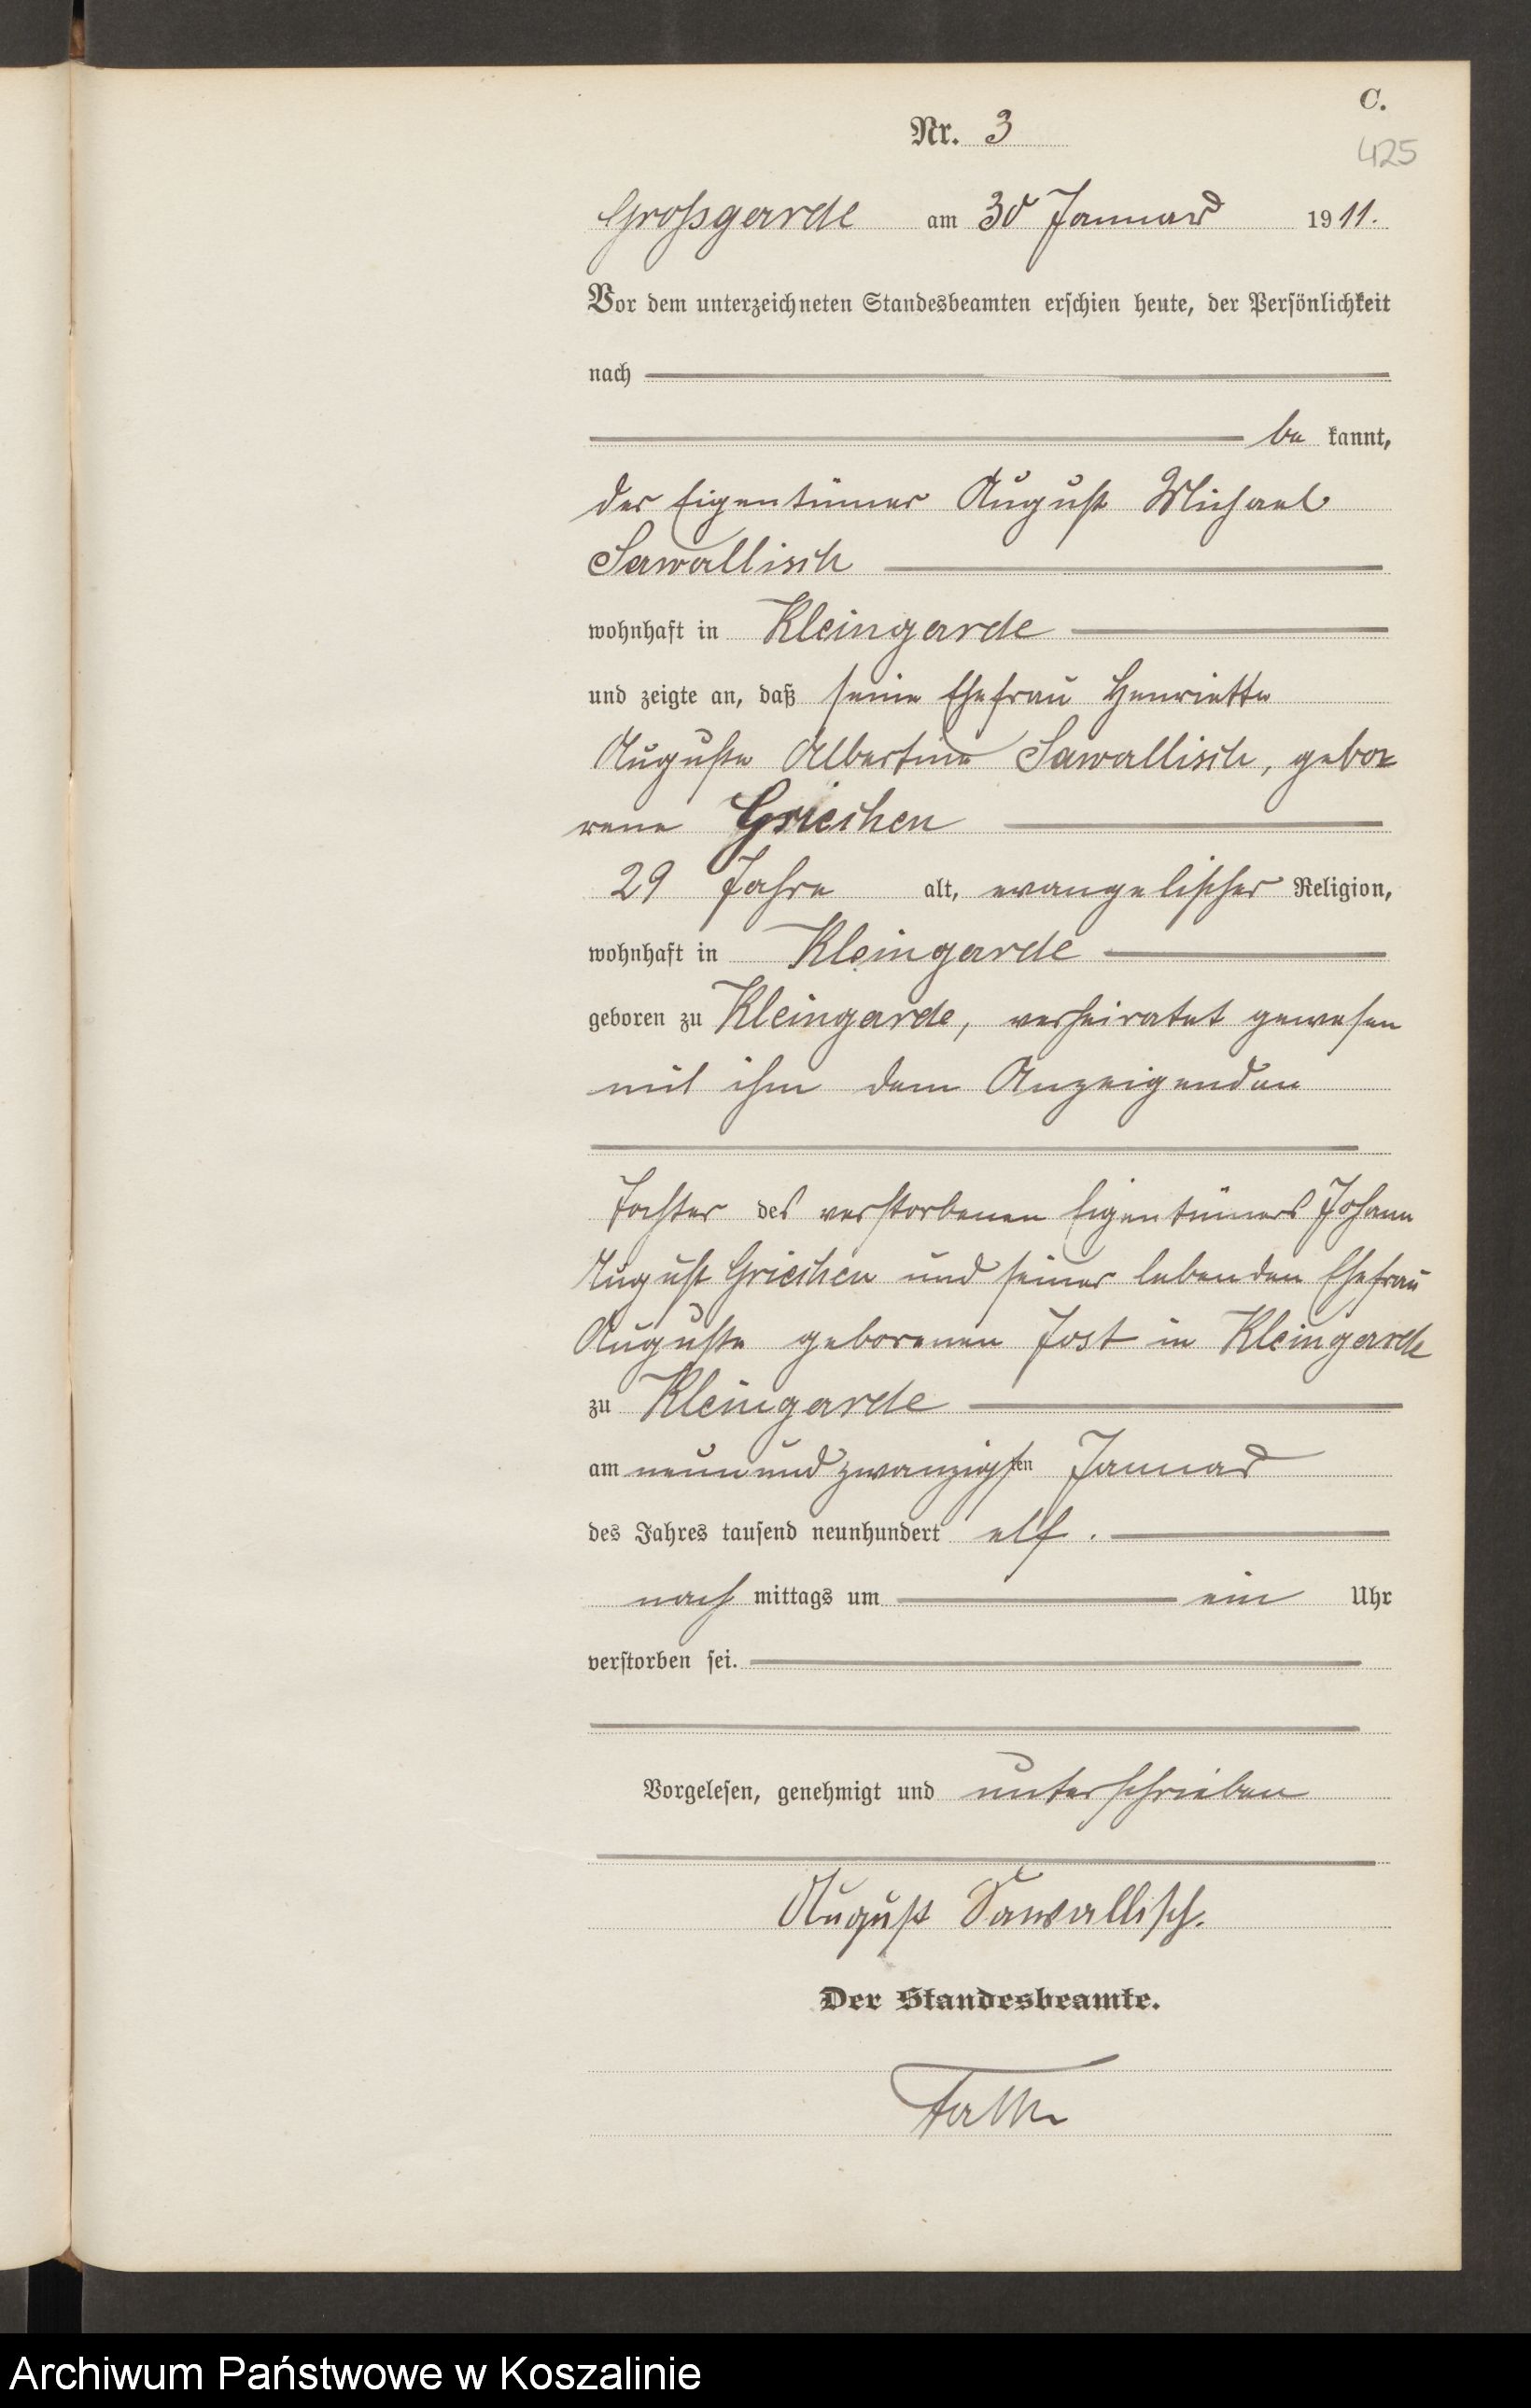 C.
Nr. 3
425
Grossgarde am 30 Januar 1911.
Vor dem unterzeichneten Standesbeamten erschien heute, der Persönlichkeit
nach
be kannt,
der Eigentümer August Michael
Sawallisch
wohnhaft in Kleingarde
und zeigte an, daß seine Ehefrau Henriette
Auguste Albertine Sawallisch, gebo-
rene Griechen
29 Jahre alt, evangelischer Religion,
wohnhaft in Kleingarde
geboren zu Kleingarde, verheiratet gewesen
mit ihm dem Anzeigenden
Tochter des verstorbenen Eigentümers Johann
August Griechen und seiner lebenden Ehefrau
Auguste geborenen Jost in Kleingarde
zu Kleingarde
am neunundzwanzigsten Januar
des Jahres tausend neunhundert elf.
nach mittags um ein Uhr
verstorben sei.
Vorgelesen, genehmigt und unterschrieben
August Sawallisch.
Der Standesbeamte.
Archiwum Państwowe w Koszalinie